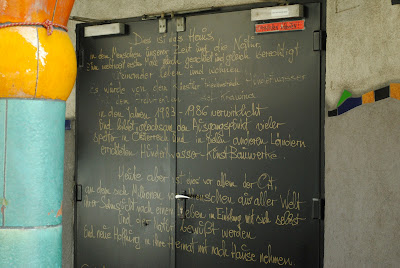 Dies ist das Haus,
in dem Menschen unserer Zeit und die Natur,
geachtet und gleich berechtigt
Leben und wohnen
Es wurde von dem Hundertwasser
in den Jahren 1983-1986 verwirklicht
und bildet gleichsam den Ausgangspunkt vieler
später in Österreich und in vielen anderen Ländern
errichteten Hundertwasser-Kunst Bauwerke.
Heute aber ist dies vor allem der Ort,
an dem sich Millionen von Menschen aus aller Welt
ihrer Sehnsucht nach einem Leben in Einklang mit sich selbst
und der Natur bewußt werden
und neue Hoffnung in ihre Heimat mit nach Hause nehmen.